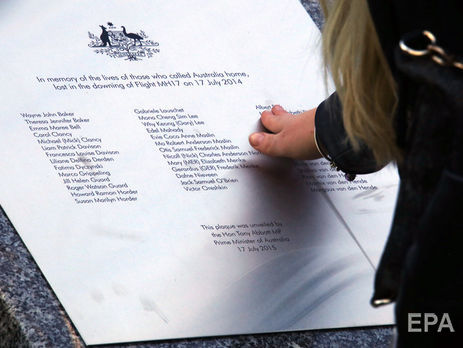 In memory of the lives of those who called Australia home,
lost in the downing of Flight MH17 on 17 July 2014
Wayne John Baker
Theresa Jennifer Baker
Emma Maree Bell
Carol Clancy
Michael (Mick) Clancy
Liam Patrick Davison
Francesca Louise Davison
Liliane Derden
Fatima Dyczynski
Marco Grippeling
Jill Helen Guard
Roger Watson Guard
Howard Roman Horder
Susan Marilyn Horder
Gabriele Lauschet
Mona Cheng Sim Lee
Why Keong (Gary) Lee
Edel Mahady
Evie Coco Anne Maslin
Mo Robert Anderson Maslin
Otis Samuel Frederick Maslin
Nicoll (Nick) Charles Anderson
Mary (MER) Elisabeth Menke
Gerardus (GER) Frederik Menke
Dafne Nieveen
Jack Samuel O'Brien
Victor Oreshkin
Albert
van den Hende
van den Hende
This plaque was unveiled by
the Hon Tony Abbott MP
Prime Minister of Australia
17 July 2015
EPA
epa